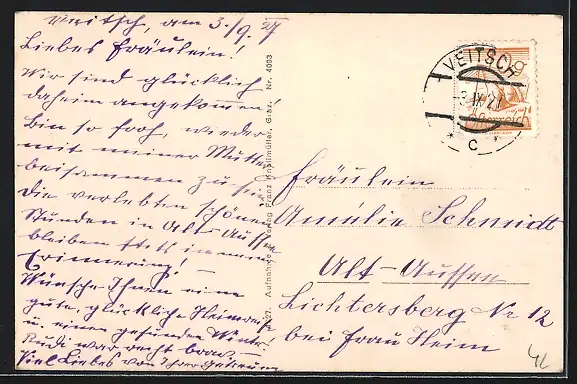 Veitsch, am 3./9. 27
Liebes Fräulein!
Wir sind glücklich
daheim angekommen!
Bin so froh, wieder
mit meiner Mutter
beisammen zu sein
Die verlebten schönen
Stunden in Alt-Aussee
bleiben stets in mein
Erinnerung! —
Wünsche Ihnen eine
gute, glückliche Heimreise
u. einen gesunden Winter!
Rudi war recht brav —
Viel Liebes von Ihrer Getreuen
Aufnahme u. Verlag Franz Knollmüller, Graz. Nr. 4093
VEITSCH
3 IX 27
* C *
Fräulein
Amalie Schmidt
Alt-Aussee
Lichtersberg Nr 12
bei Frau Heim